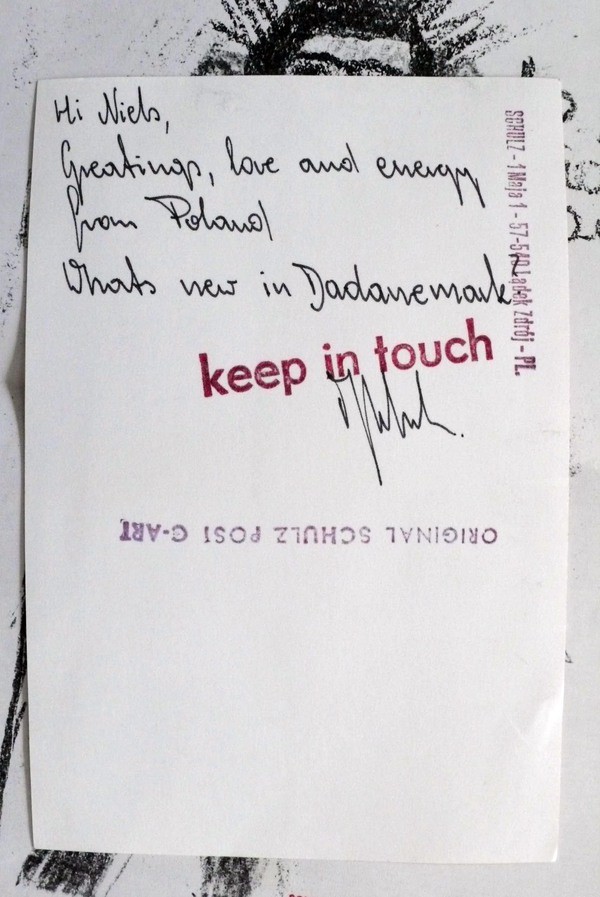 Hi Niels,
Greatings, love and energy
from Poland
Whats new in Dadanemark
keep in touch
SCHULZ - 1 Maja 1 - 57-540 Lądek Zdrój - PL
ORIGINAL SCHULZ POST G-ART